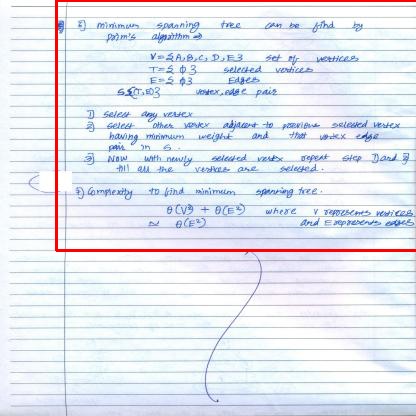 2) minimum spanning tree can be find by
prim's algorithm ⇒
V = {A, B, C, D, E} set of vertices
T = {ϕ} selected vertices
E = {ϕ} Edges
S {T, E} vertex, edge pair
1) select any vertex
2) select other vertex adjacent to previous selected vertex
having minimum weight and that vertex edge
pair in S.
3) Now with newly selected vertex repeat step 1) and 2)
till all the vertices are selected.
Complexity to find minimum spanning tree.
θ(V²) + θ(E²) where V represents vertices
≈ θ(E²) and E represents edges